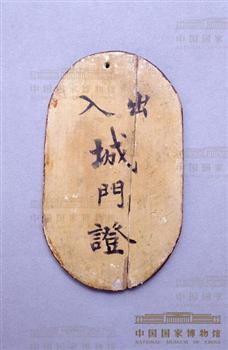 出入
城門證
中国国家博物馆
NATIONAL MUSEUM OF CHINA